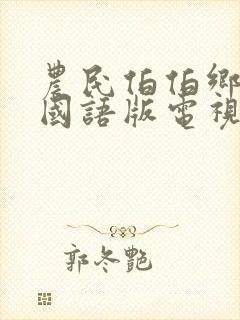 農民伯伯鄉
國語版電視
郭冬艷